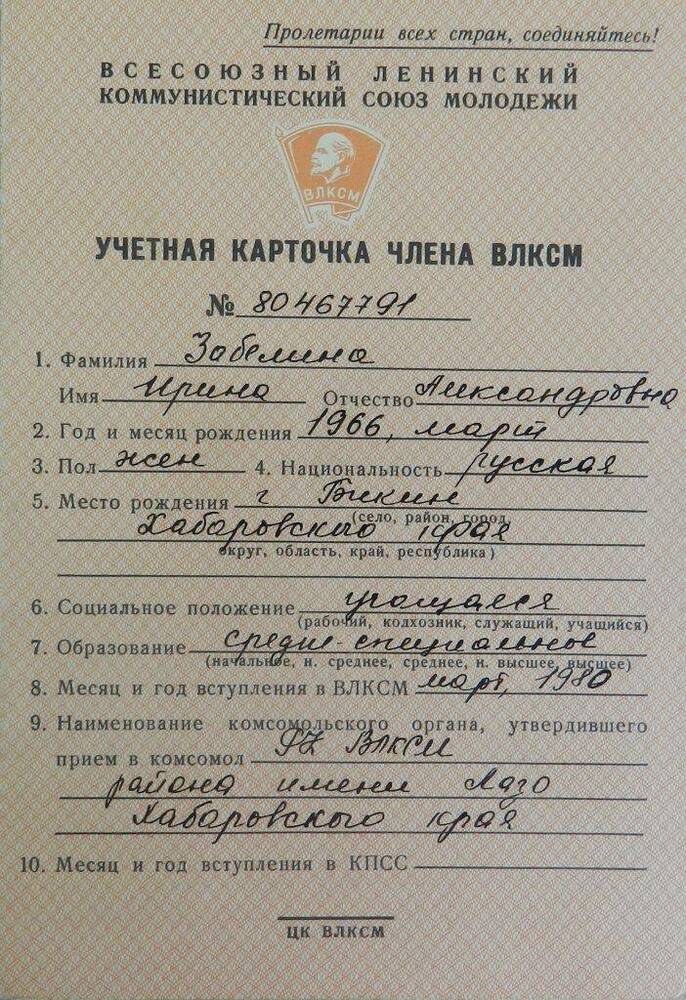 Пролетарии всех стран, соединяйтесь!
ВСЕСОЮЗНЫЙ ЛЕНИНСКИЙ
КОММУНИСТИЧЕСКИЙ СОЮЗ МОЛОДЕЖИ
ВЛКСМ
УЧЕТНАЯ КАРТОЧКА ЧЛЕНА ВЛКСМ
№ 80467791
1. Фамилия Забелина
Имя Ирина Отчество Александровна
2. Год и месяц рождения 1966, март
3. Пол жен 4. Национальность русская
5. Место рождения г Бикин
(село, район, город,
Хабаровского края
округ, область, край, республика)
6. Социальное положение учащаяся
(рабочий, колхозник, служащий, учащийся)
7. Образование средне-специальное
(начальное, н. среднее, среднее, н. высшее, высшее)
8. Месяц и год вступления в ВЛКСМ март, 1980
9. Наименование комсомольского органа, утвердившего
прием в комсомол РК ВЛКСМ
района имени Лазо
Хабаровского края
10. Месяц и год вступления в КПСС
ЦК ВЛКСМ